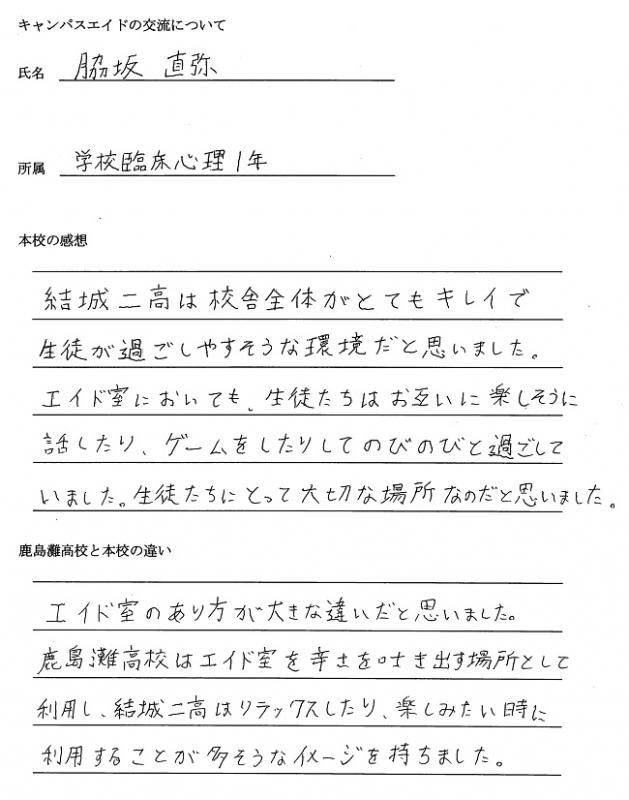 キャンパスエイドの交流について
氏名 脇坂 直弥
所属 学校臨床心理1年
本校の感想
結城二高は校舎全体がとてもキレイで
生徒が過ごしやすそうな環境だと思いました。
エイド室においても、生徒たちはお互いに楽しそうに
話したり、ゲームをしたりしてのびのびと過ごして
いました。生徒たちにとって大切な場所なのだと思いました。
鹿島灘高校と本校の違い
エイド室のあり方が大きな違いだと思いました。
鹿島灘高校はエイド室を辛さを吐き出す場所として
利用し、結城二高はリラックスしたり、楽しみたい時に
利用することが多そうなイメージを持ちました。